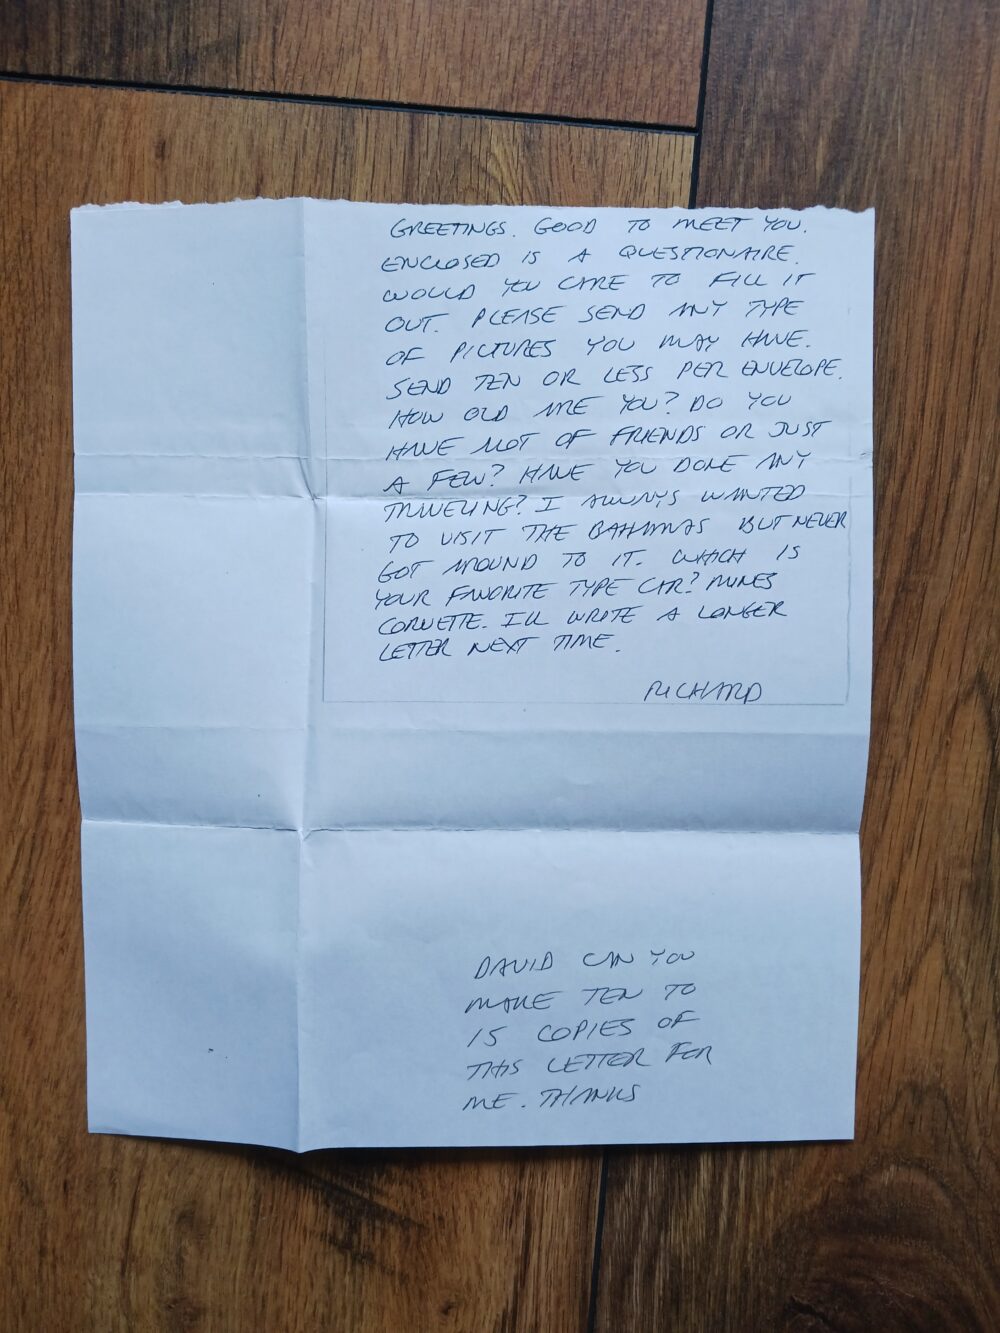 GREETINGS. GOOD TO MEET YOU.
ENCLOSED IS A QUESTIONAIRE.
WOULD YOU CARE TO FILL IT
OUT. PLEASE SEND ANY TYPE
OF PICTURES YOU MAY HAVE.
SEND TEN OR LESS PER ENVELOPE.
HOW OLD ARE YOU? DO YOU
HAVE ALOT OF FRIENDS OR JUST
A FEW? HAVE YOU DONE ANY
TRAVELING? I ALWAYS WANTED
TO VISIT THE BAHAMAS BUT NEVER
GOT AROUND TO IT. WHICH IS
YOUR FAVORITE TYPE CAR? MINES
CORVETTE. I'LL WRITE A LONGER
LETTER NEXT TIME.
RICHARD
DAVID CAN YOU
MAKE TEN TO
15 COPIES OF
THIS LETTER FOR
ME. THANKS